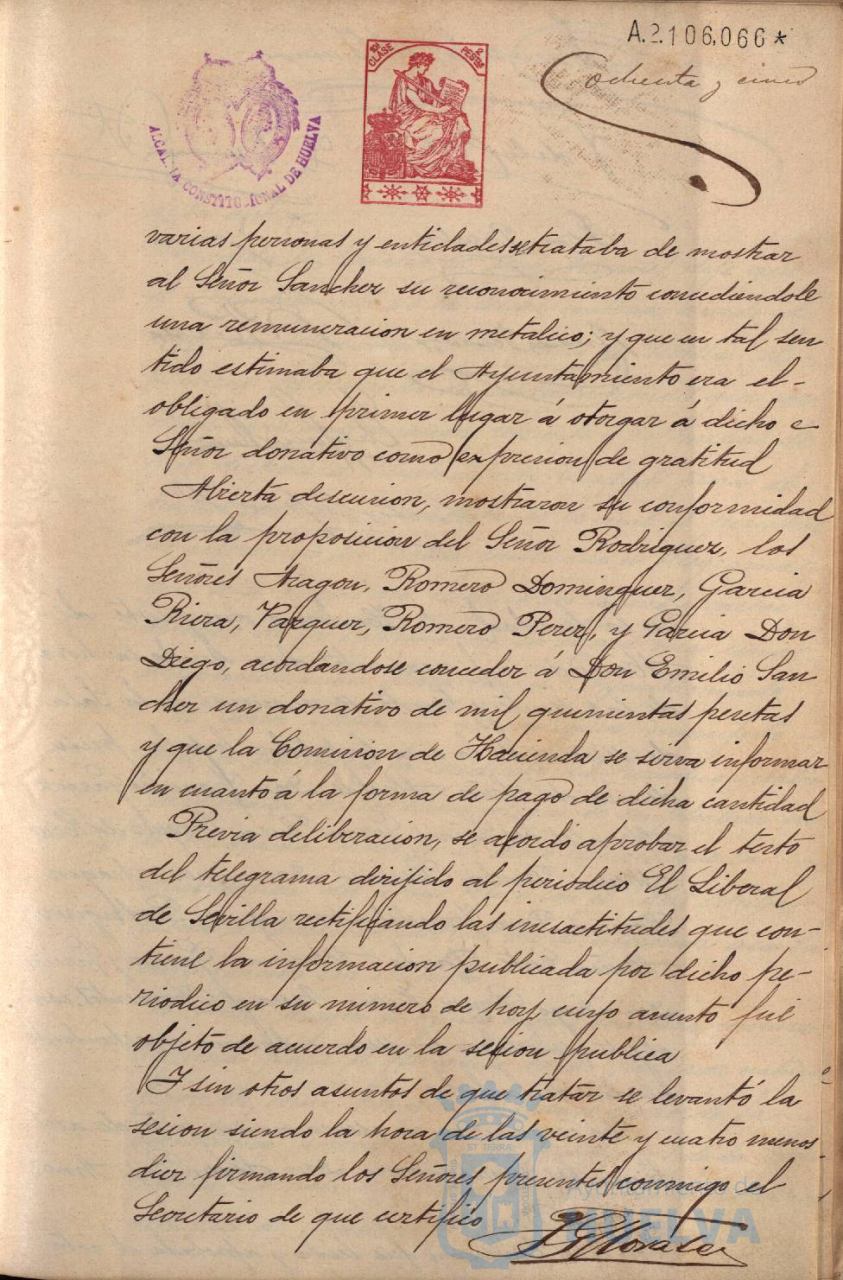 A.2.106,066*
Ochenta y cinco
10ª CLASE
2 PESETAS
ALCALDIA CONSTITUCIONAL DE HUELVA
varias personas y entidades se trataba de mostrar
al Señor Sanchez su reconocimiento concediendole
una remuneracion en metalico; y que en tal sen
tido estimaba que el Ayuntamiento era el-
obligado en primer lugar á otorgar á dicho
Señor donativo como expresion de gratitud
Abierta discusion, mostraron su conformidad
con la proposicion del Señor Rodriguez, los
Señores Aragon, Romero Dominguez, Garcia
Riera, Vazquez, Romero Perez, y Garcia Don
Diego, acordandose conceder á Don Emilio San
chez un donativo de mil quinientas pesetas
y que la Comision de Hacienda se sirva informar
en cuanto á la forma de pago de dicha cantidad
Previa deliberacion, se acordó aprobar el testo
del telegrama dirijido al periodico El Liberal
de Sevilla rectificando las inesactitudes que con-
tiene la informacion publicada por dicho pe-
riodico en su número de hoy cuyo asunto fué
objeto de acuerdo en la sesion publica
Y sin otros asuntos de que tratar se levantó la
sesion siendo la hora de las veinte y cuatro menos
diez firmando los Señores presentes conmigo el
Secretario de que certifico
Ayuntamiento de
HUELVA